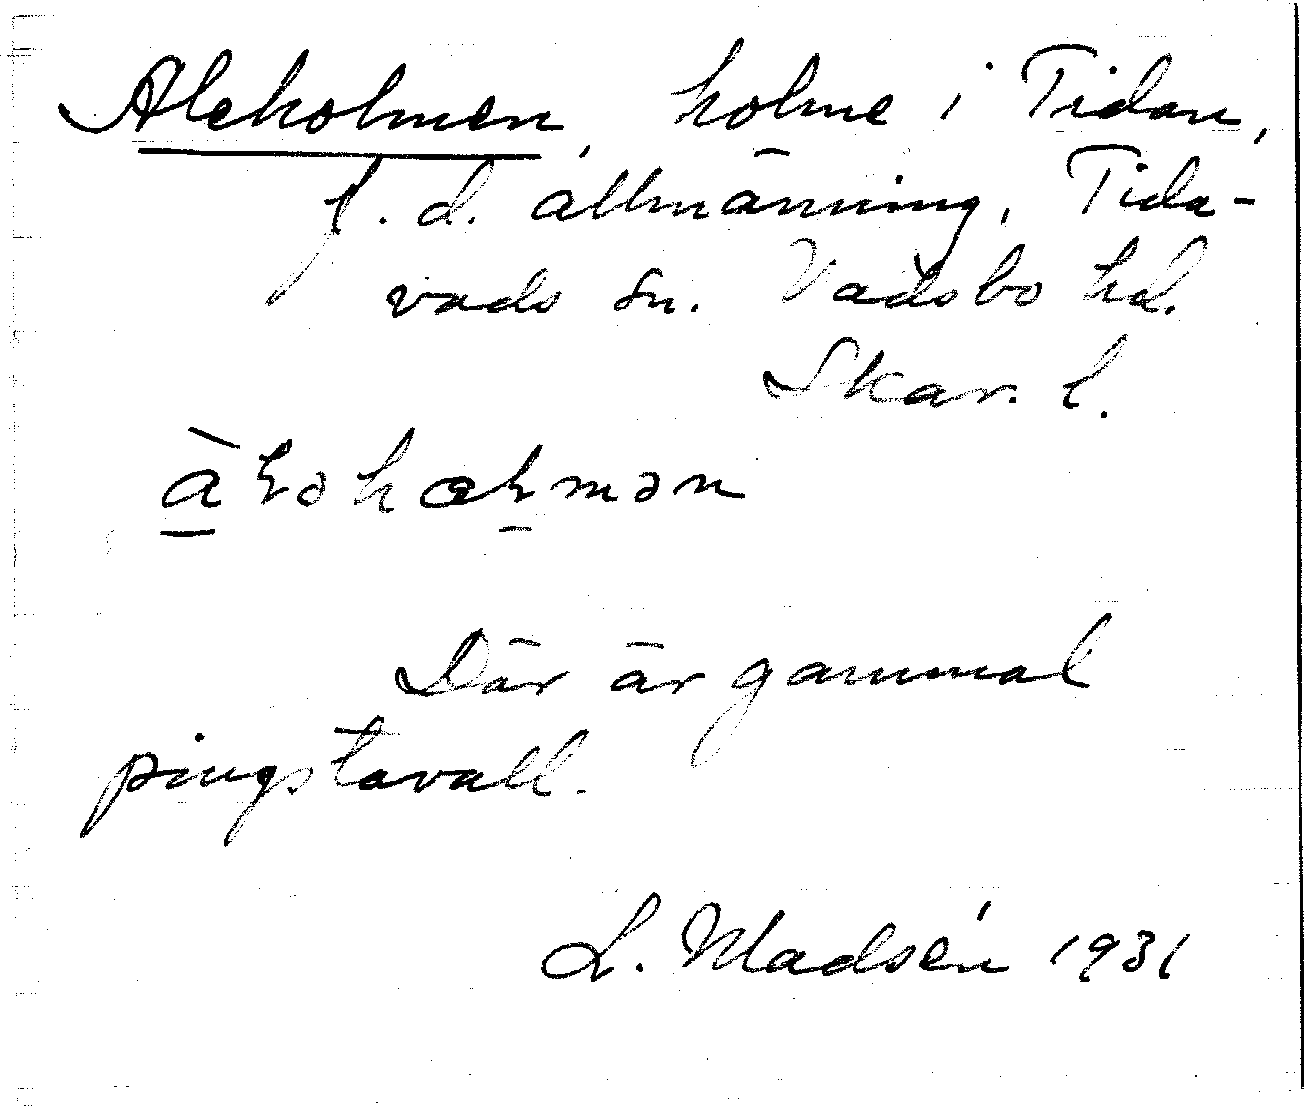 Aleholmen, holme i Tidan,
f. d. allmänning, Tida-
vads sn. Vadsbo hd.
Skar. l.
Där är gammal
pingstavall.
L. Madsén 1931